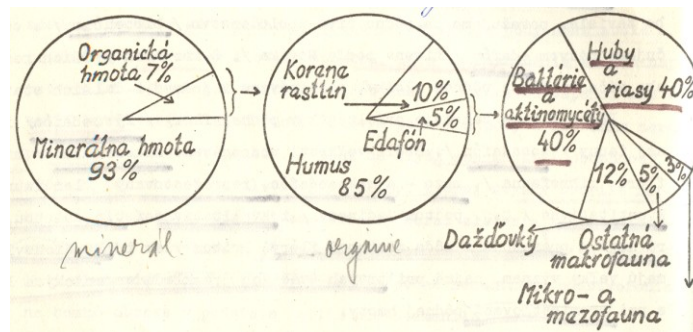 Organická
hmota 7%
Minerálna hmota
93%
minerál
Korene
rastlín
10%
5%
Edafón
Humus
85%
organie
Huby
a
riasy 40%
Baktérie
a
aktinomycéty
40%
12%
5%
3%
Dažďovky
Ostatná
makrofauna
Mikro- a
mezofauna